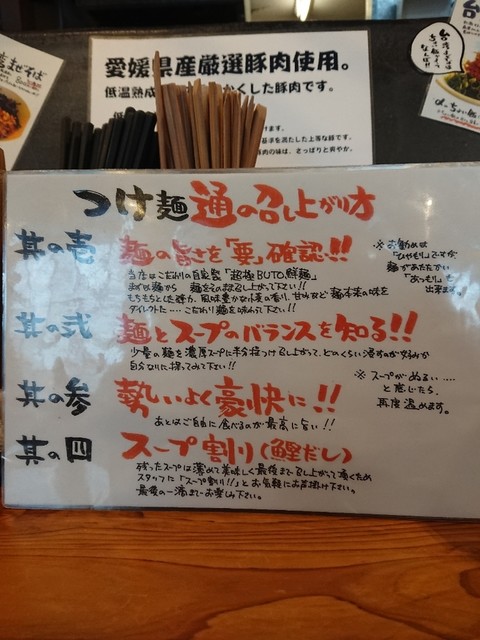 愛媛県産厳選豚肉使用。
つけ麺通の召し上がり方
其の壱 麺の旨さを「要」確認!!
当店はこだわりの自家製「超極BUTO鮮麺」
まずは麺から 麺をそのまま召し上がって下さい!!
もちもちとした弾力、風味豊かな小麦の香り、甘みなど 麺本来の味を
ダイレクトに‥‥こだわり麺を味わって下さい!!
※お勧めは
「ひやもり」ですが、
麺があたたかい
「あつもり」も
出来ます。
其の弐 麺とスープのバランスを知る!!
少量の麺を濃厚スープに半分程つけ召し上がって、どのくらい浸すのが好みか
自分なりに探ってみて下さい!!
其の参 勢いよく豪快に!!
あとはご自由に食べるのが最高に旨い!!
※スープがぬるい‥‥
と感じたら、
再度温めます。
其の四 スープ割り(鰹だし)
残ったスープは薄めて美味しく最後まで召し上がって頂くため
スタッフに「スープ割り!!」とお気軽にお声掛け下さい。
最後の一滴までお楽しみ下さい。